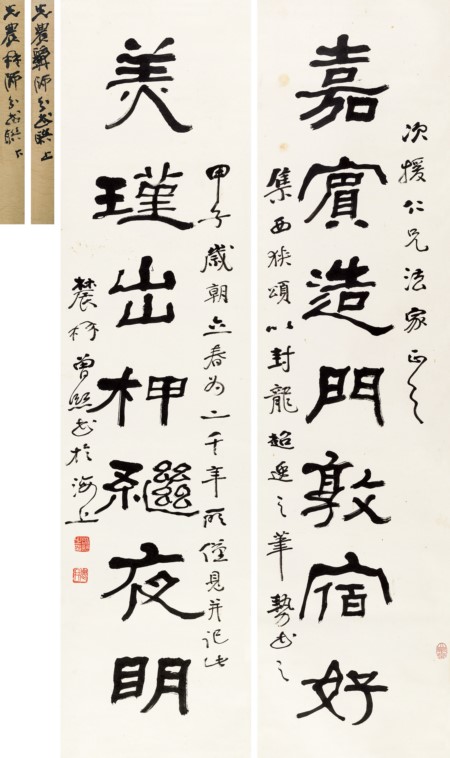 次援仁兄法家正之
嘉賓造門敦宿好
集西狹頌以封龍超逸之筆勢書之
甲子歲朝立春為二千年所僅見并記此
美瑾出柙繼夜明
農髯曾熙書於海上
先農髯師分書聯 上
先農髯師分書聯 下